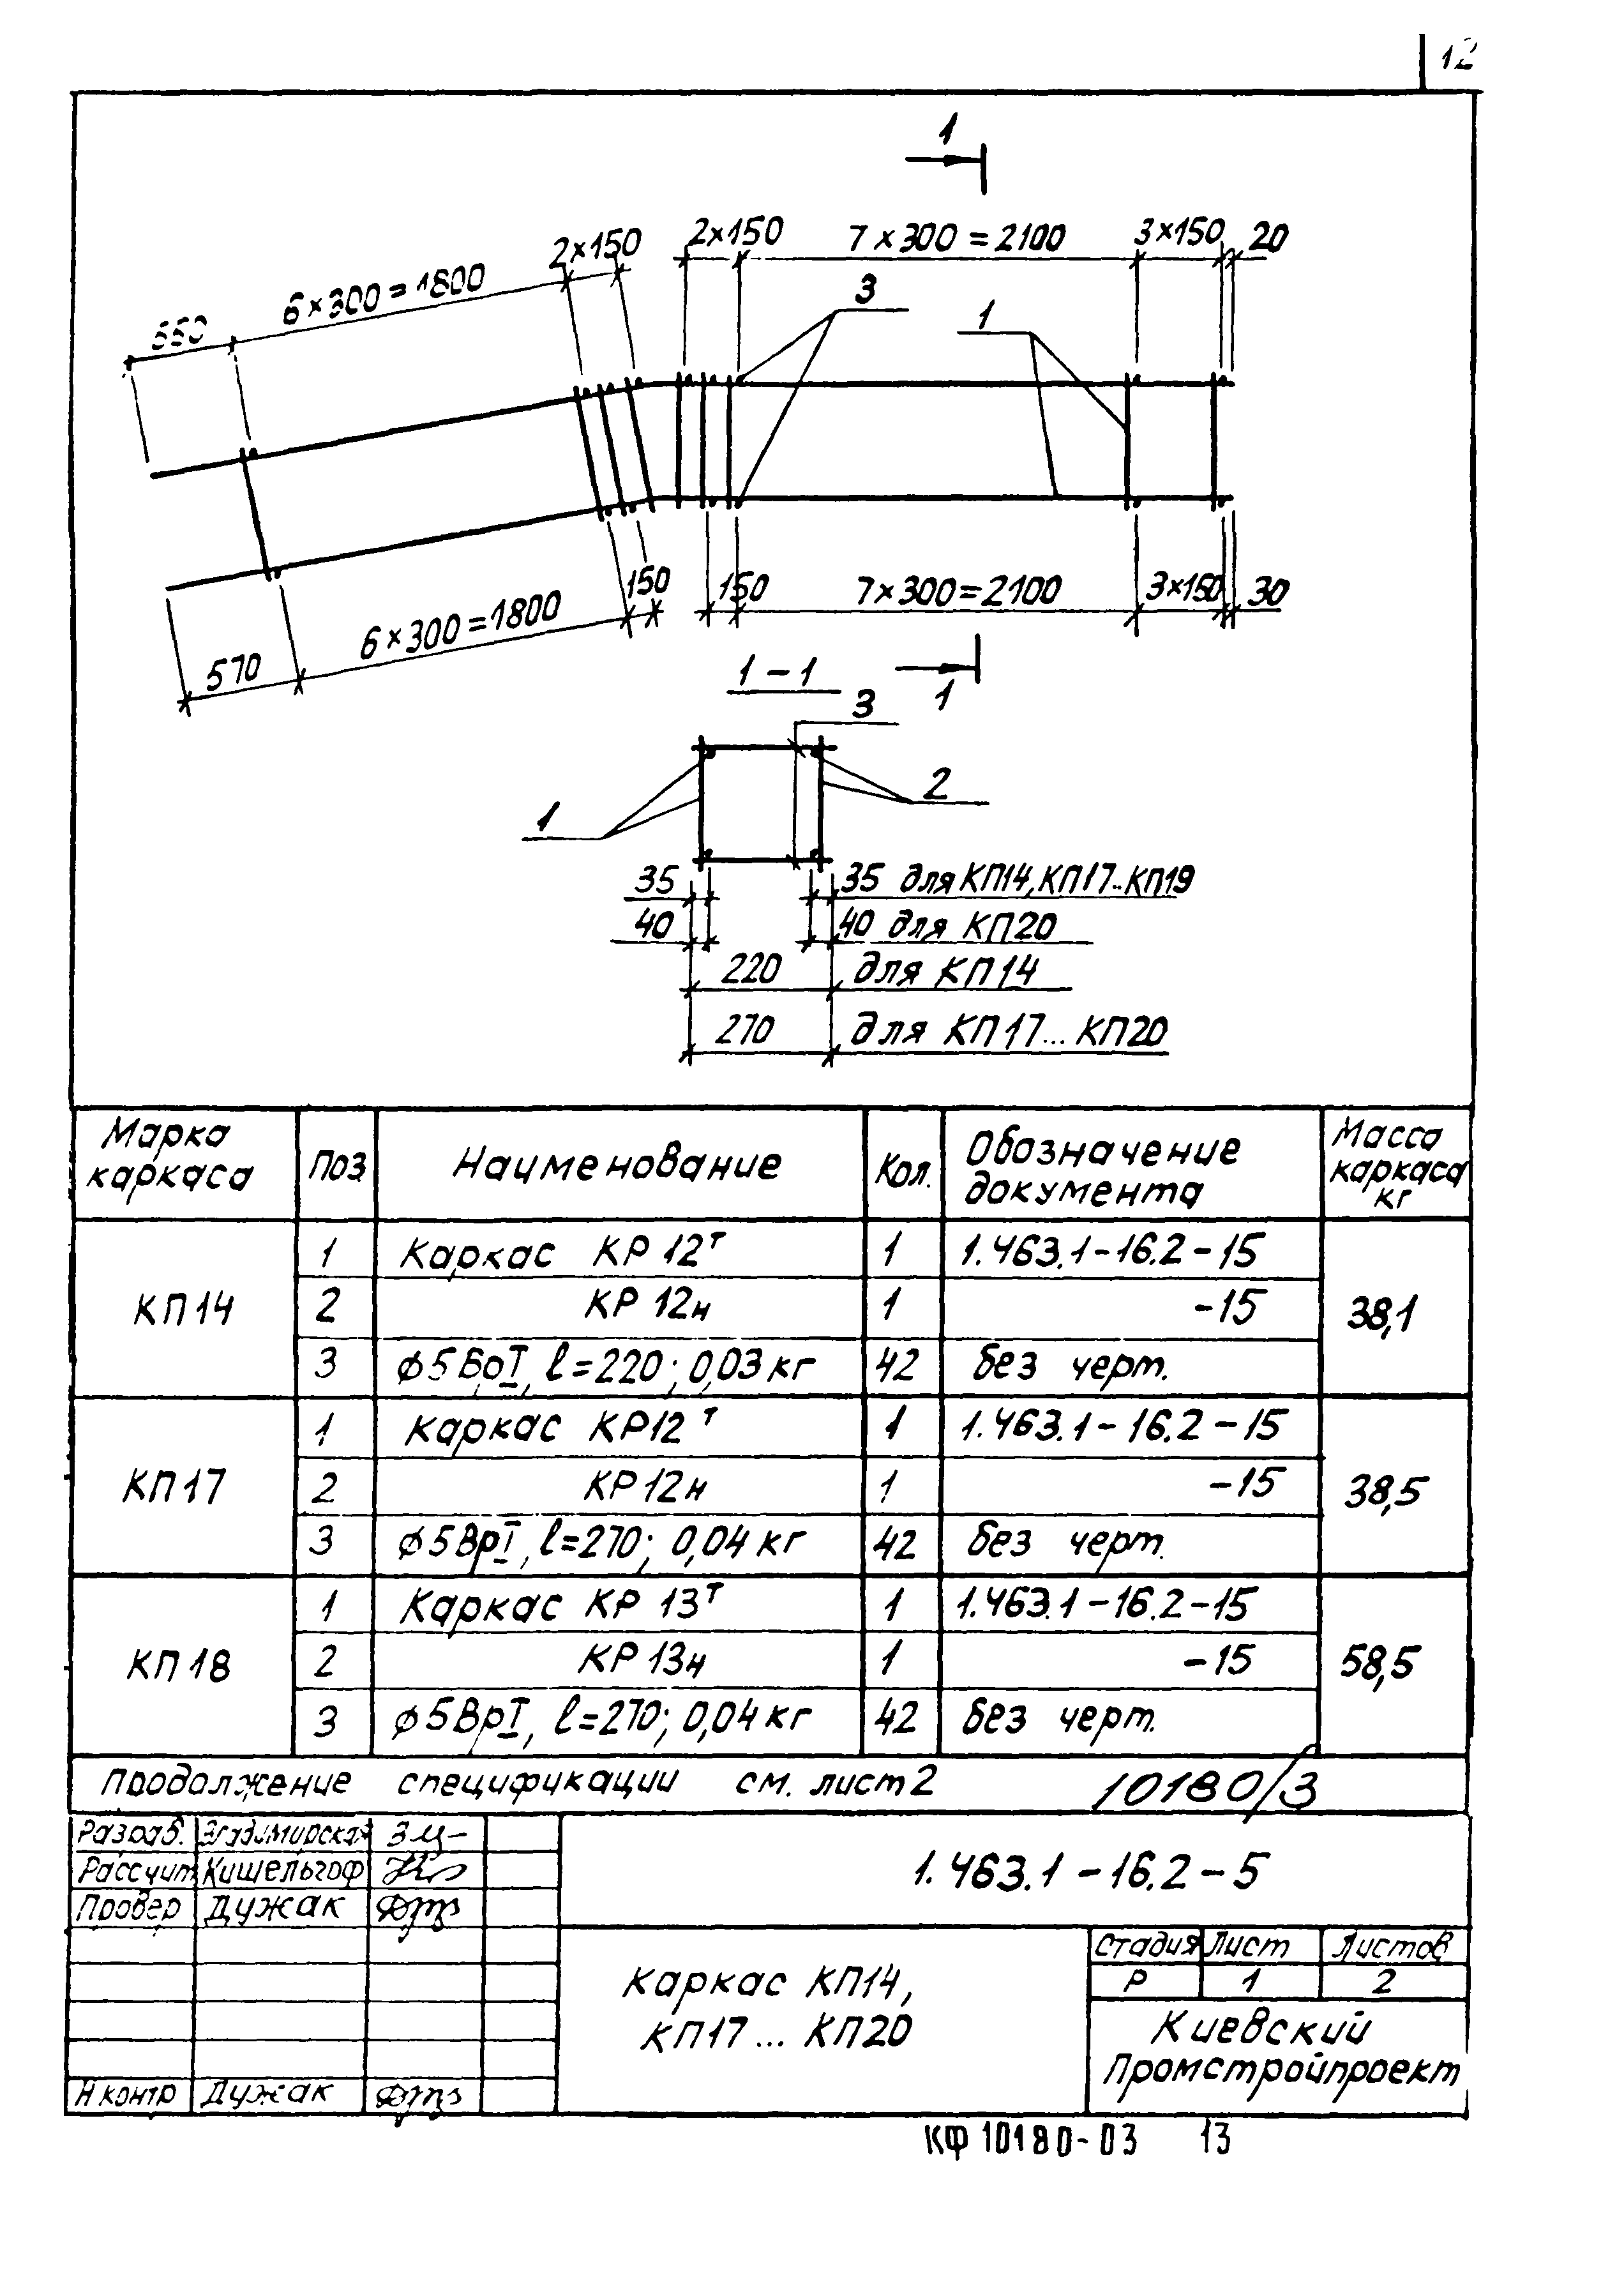 12
1
2×150
2×150
7×300=2100
3×150
20
6×300=1800
550
3
1
150
150
7×300=2100
3×150
30
6×300=1800
570
1
1-1
3
2
1
35
35 для КП14,КП17..КП19
40
40 для КП20
220
для КП14
270
для КП17...КП20
Марка каркаса
Поз
Наименование
Кол.
Обозначение документа
Масса каркаса кг
КП14
1 Каркас КР12т 1 1.463.1-16.2-15
2 КР12н 1 -15
38,1
3 ϕ5ВрI, l=220; 0,03кг 42 без черт.
КП17
1 Каркас КР12т 1 1.463.1-16.2-15
2 КР12н 1 -15
38,5
3 ϕ5ВрI, l=270; 0,04кг 42 без черт.
КП18
1 Каркас КР13т 1 1.463.1-16.2-15
2 КР13н 1 -15
58,5
3 ϕ5ВрI, l=270; 0,04кг 42 без черт.
Продолжение спецификации см. лист2
10180/3
Разраб. Владимирская
Рассчит Кишельгоф
Провер Дужак
Н контр Дужак
1.463.1-16.2-5
Каркас КП14,
КП17...КП20
Стадия Лист Листов
Р 1 2
Киевский
Промстройпроект
КФ 10180-03 13